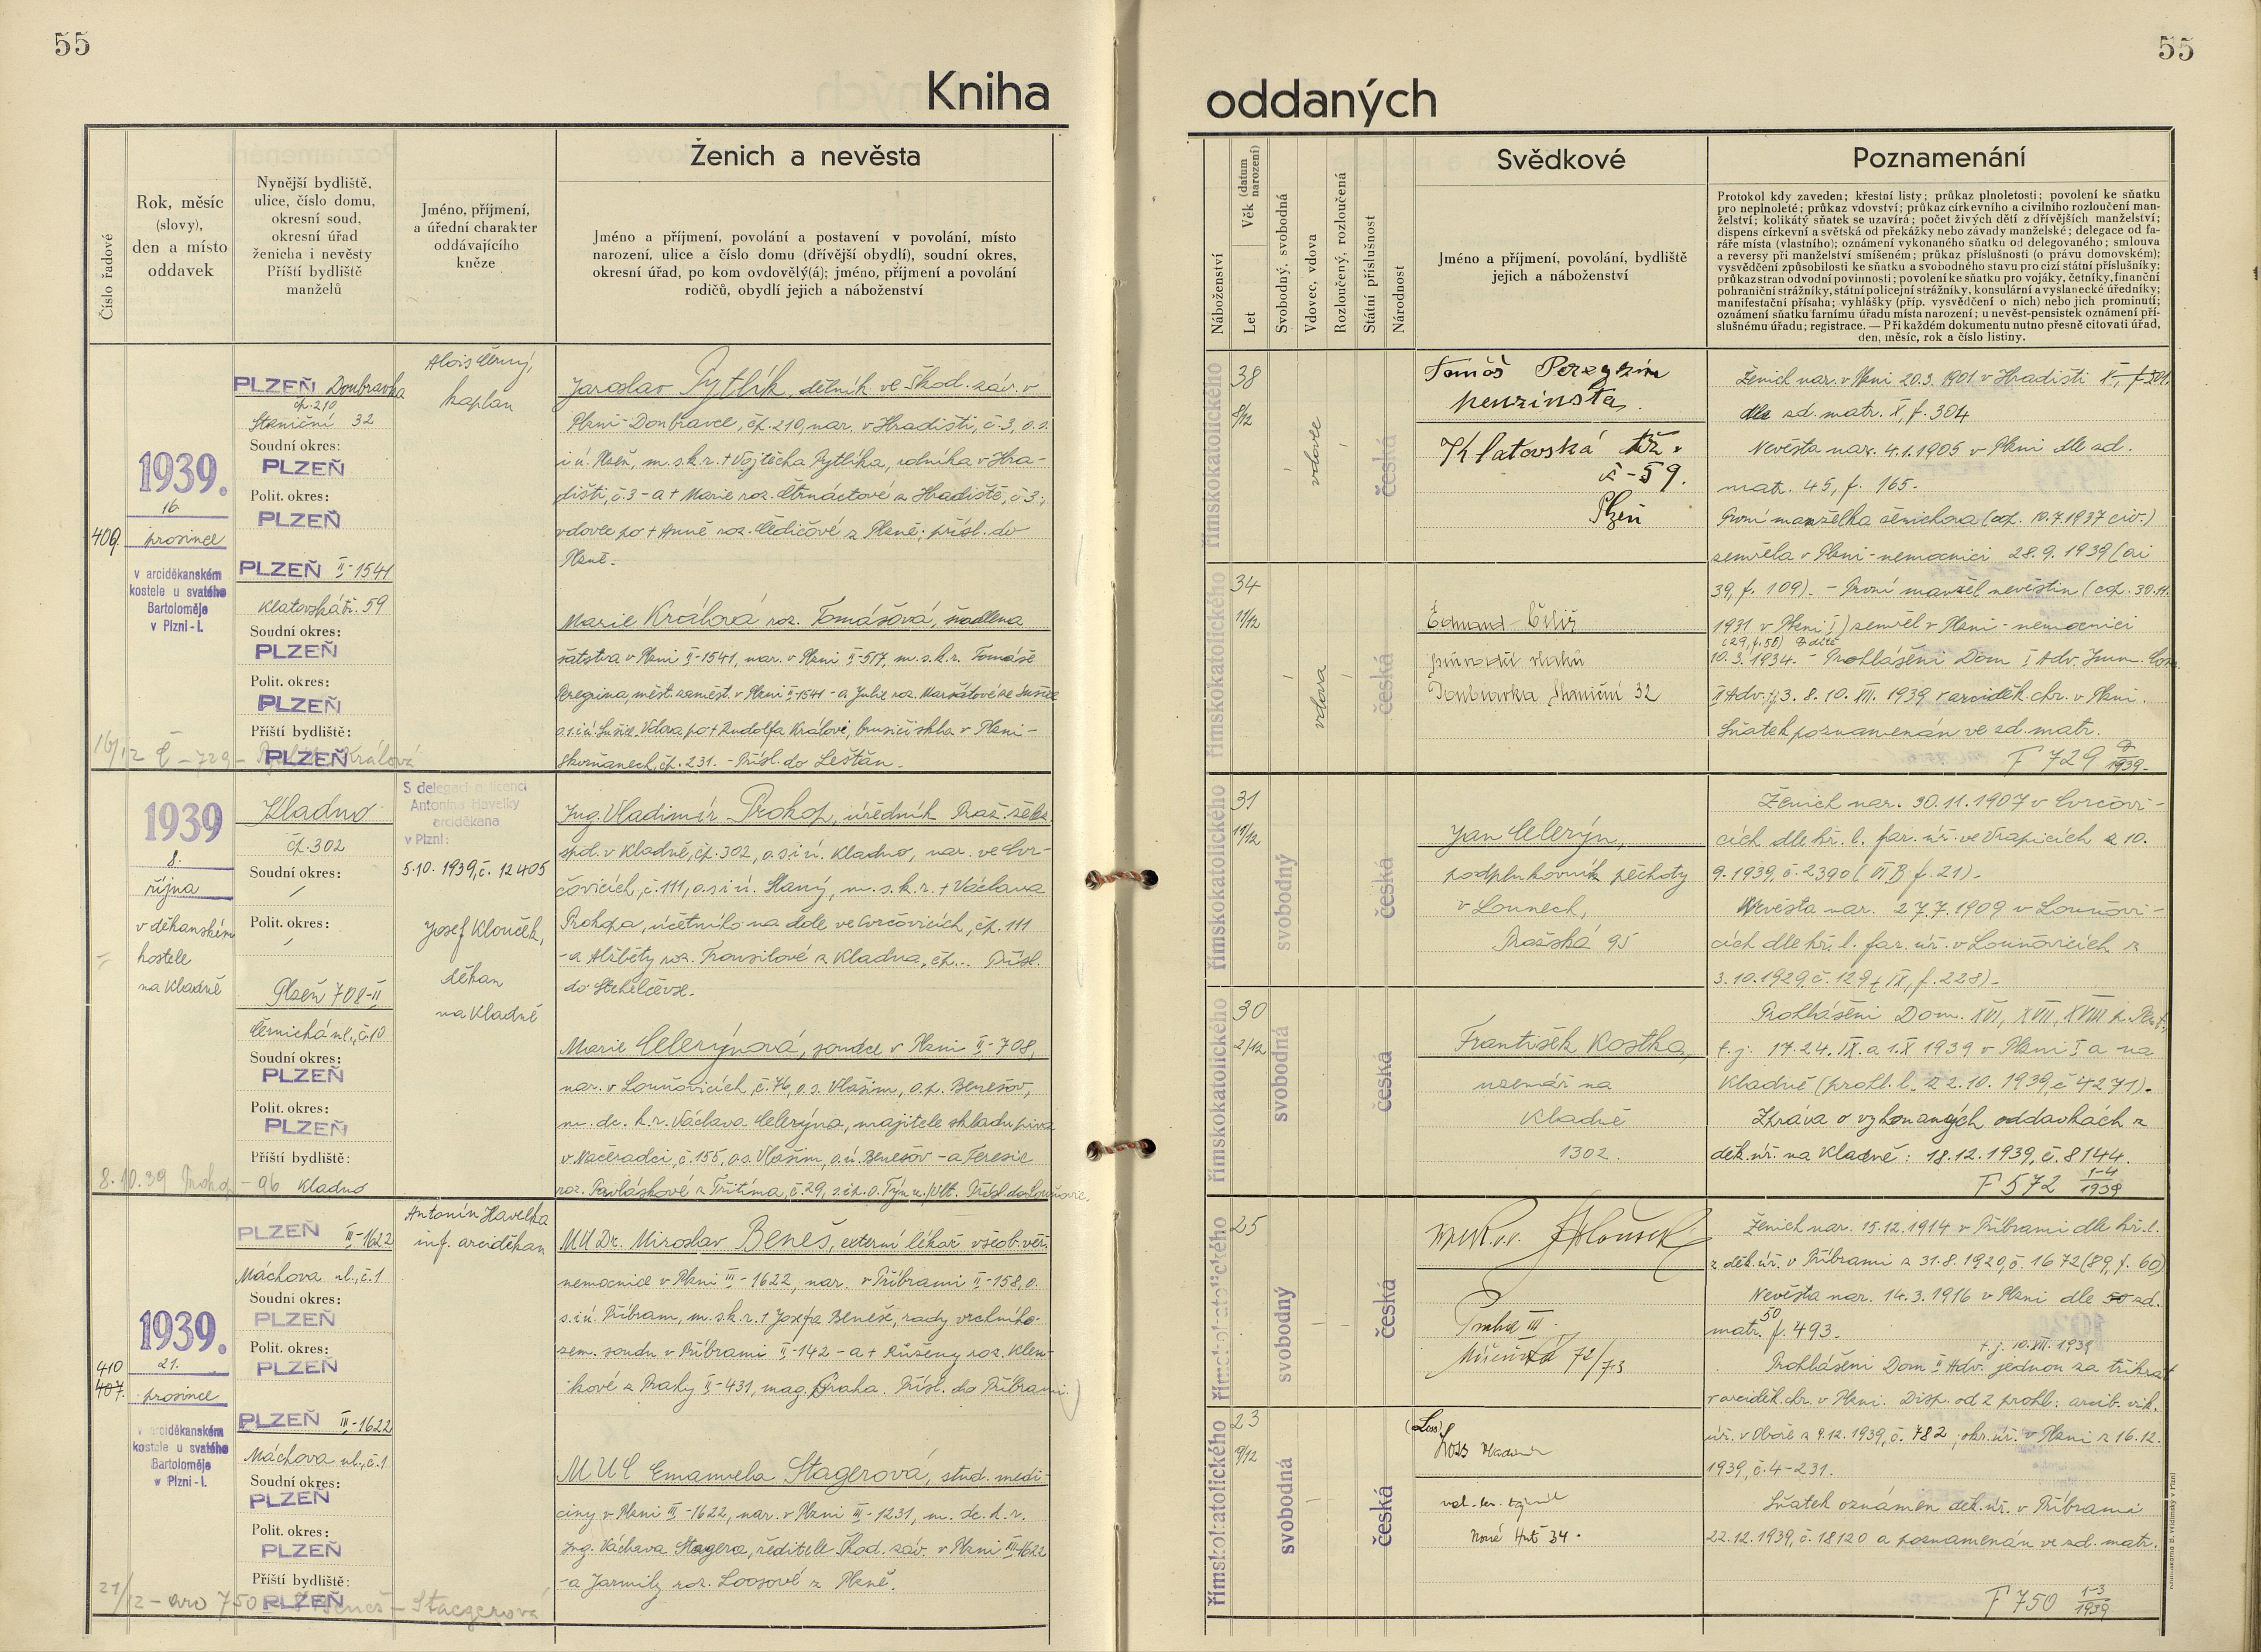 55
Kniha
Číslo řadové
Rok, měsíc
(slovy),
den a místo
oddavek
Nynější bydliště,
ulice, číslo domu,
okresní soud,
okresní úřad
ženicha i nevěsty
Příští bydliště
manželů
Jméno, příjmení,
a úřední charakter
oddávajícího
kněze
Ženich a nevěsta
Jméno a příjmení, povolání a postavení v povolání, místo
narození, ulice a číslo domu (dřívější obydlí), soudní okres,
okresní úřad, po kom ovdovělý(á); jméno, příjmení a povolání
rodičů, obydlí jejich a náboženství
409.
1939.
16.
prosince
v arciděkanském
kostele u svatého
Bartoloměje
v Plzni-I.
PLZEŇ Doubravka
čp. 210
Staniční 32
Soudní okres:
PLZEŇ
Polit. okres:
PLZEŇ
PLZEŇ II-1541
Klatovská tř. 59
Soudní okres:
PLZEŇ
Polit. okres:
PLZEŇ
Příští bydliště:
PLZEŇ
Alois Černý,
kaplan
Jaroslav Pytlík, dělník ve Škod. záv. v
Plzni-Doubravce, čp. 210, nar. v Hradišti, č. 3, o. s.
i ú. Plzeň, m. s. k. r. + Vojtěcha Pytlíka, rolníka v Hra-
dišti, č. 3 - a + Marie roz. Čtrnáctové z Hradiště, č. 3;
vdovec po + Anně roz. Dědičové z Plzně; přísl. do
Plzně.
Marie Králová roz. Tomášová, švadlena
šatstva v Plzni II-1541, nar. v Plzni II-517, m. s. k. r. Tomáše
Peregrina, měst. zaměst. v Plzni II-1541 - a Julie roz. Maršátové ze Sušice
o. s. i ú. Sušice. Vdova po + Rudolfa Králové, brusiči skla v Plzni-
Skvrňanech, čp. 231. - Přísl. do Leštan.
16/12 Č - 729 - Králová
1939
8.
října
v děkanském
kostele
na Kladně
Kladno
čp. 302
Soudní okres:
/
Polit. okres:
/
Plzeň 708-II
Černická ul., č. 10
Soudní okres:
PLZEŇ
Polit. okres:
PLZEŇ
Příští bydliště:
Kladno
S delegací a licencí
Antonína Havelky
arciděkana
v Plzni:
5.10. 1939, č. 12405
Josef Klouček,
děkan
na Kladně
Ing. Vladimír Prokop, úředník Praž. želez.
spol. v Kladně, čp. 302, o. s. i ú. Kladno, nar. ve Cvr-
čovicích, č. 111, o. s. i ú. Slaný, m. s. k. r. + Václava
Prokopa, účetního na dole ve Cvrčovicích, čp. 111
- a Alžběty roz. Trousilové z Kladna, čp... Přísl.
do Stehelčevse.
Marie Celerýnová, soudce v Plzni II-708,
nar. v Louňovicích, č. 76, o. s. Vlašim, o. p. Benešov,
m. dc. k. r. Václava Celerýna, majitele skladu piva
v Načeradci, č. 155, o. s. Vlašim, o. ú. Benešov - a Teresie
roz. Pavláskové z Třitíma, č. 29, s. i p. o. Týn n./Vlt. Přísl. do Louňovic.
8.10.39 Prokop - 96
410
407.
1939.
21.
prosince
v arciděkanském
kostele u svatého
Bartoloměje
v Plzni-I.
PLZEŇ III-1622
Máchova ul., č. 1
Soudní okres:
PLZEŇ
Polit. okres:
PLZEŇ
PLZEŇ III-1622
Máchova ul., č. 1
Soudní okres:
PLZEŇ
Polit. okres:
PLZEŇ
Příští bydliště:
PLZEŇ
Antonín Havelka
inf. arciděkan
MUDr. Miroslav Beneš, externí lékař všeob. veř.
nemocnice v Plzni III-1622, nar. v Příbrami II-158, o.
s. i ú. Příbram, m. s. k. r. + Josefa Beneše, rady vrchního
zem. soudu v Příbrami II-142 - a + Růženy roz. Klen-
kové z Prahy II-431, mag. Praha. Přísl. do Příbrami.
MUC Emanuela Stagerová, stud. medi-
ciny v Plzni III-1622, nar. v Plzni III-1231, m. dc. k. r.
Ing. Václava Stagera, ředitele Škod. záv. v Plzni III-1622
- a Jarmily roz. Loosové z Plzně.
21/12 - 750 - Beneš - Staegerová
55
oddaných
Náboženství
Věk (datum narození)
Let
Svobodný, svobodná
Vdovec, vdova
Rozloučený, rozloučená
Státní příslušnost
Národnost
Svědkové
Jméno a příjmení, povolání, bydliště
jejich a náboženství
Poznamenání
Protokol kdy zaveden; křestní listy; průkaz plnoletosti; povolení ke sňatku
pro neplnoleté; průkaz vdovství; průkaz církevního a civilního rozloučení man-
želství; kolikátý sňatek se uzavírá; počet živých dětí z dřívějších manželství;
dispens církevní a světská od překážky nebo závady manželské; delegace od fa-
ráře místa (vlastního); oznámení vykonaného sňatku od delegovaného; smlouva
a reversy při manželství smíšeném; průkaz příslušnosti (o právu domovském);
vysvědčení způsobilosti ke sňatku a svobodného stavu pro cizí státní příslušníky;
průkaz stran odvodní povinnosti; povolení ke sňatku pro vojáky, četníky, finanční
pohraniční strážníky, státní policejní strážníky, konsulární a vyslanecké úředníky;
manifestační přísaha; vyhlášky (příp. vysvědčení o nich) nebo jich prominutí;
oznámení sňatku farnímu úřadu místa narození; u nevěst-pensistek oznámení pří-
slušnému úřadu; registrace. — Při každém dokumentu nutno přesně citovati úřad,
den, měsíc, rok a číslo listiny.
římskokatolického
38
8/12
vdovec
česká
Tomáš Peregrin
penzinsta
Klatovská tř.
č-59.
Plzeň
Ženich nar. v Plzni 20.3. 1901 v Hradišti
dle zd. matr. X, f. 304
Nevěsta nar. 4.1.1905 v Plzni dle zd.
matr. 45, f. 165.
První manželka ženichova (cop. 10.7.1937 civ.)
zemřela v Plzni-nemocnici 28.9. 1939 (ai
39, f. 109). - První manžel nevěstin (cop. 30.11.
1931 v Plzni I) zemřel v Plzni-nemocnici
(29, f. 58)
10.3. 1934. - Prohlášení Dom I Adv. Imm. Conc.
II Adv. tj 3. 8. 10. XII. 1939 v arciděk. chr. v Plzni.
Sňatek poznamenán ve zd. matr.
F 729 9/1939.
římskokatolického
34
11/12
vdova
česká
Doubravka Staniční 32
římskokatolického
31
11/12
svobodný
česká
Jan Celerýn,
podplukovník pěchoty
v Lounech,
Pražská 95
Ženich nar. 30.11.1907 v Cvrčovi-
cích dle kř. l. far. úř. ve Vrapicích z 10.
9.1939, č. 2390 (VI B, f. 21).
Nevěsta nar. 27.7.1909 v Louňovi-
cích dle kř. l. far. úř. v Louňovicích z
3.10.1929, č. 129 (IX, f. 228).
Prohlášení Dom. XVI, XVII, XVIII p. Pent.
t. j. 17. 24. IX. a 1. X 1939 v Plzni I a na
Kladně (prohl. l. z 2.10. 1939, č 4271).
Zpráva o vykonaných oddavkách z
děk. úř. na Kladně: 18.12.1939, č. 8144.
F 572 1-4/1939
římskokatolického
30
2/12
svobodná
česká
František Kostka,
uzenář na
Kladně
1302.
římskokatolického
25
svobodný
česká
Praha III.
72/73
Ženich nar. 15.12.1914 v Příbrami dle kř. l.
z děk. úř. v Příbrami z 31.8.1920, č. 1672 (89, f. 60)
Nevěsta nar. 14.3.1916 v Plzni dle 50 zd.
matr. 50 f. 493.
t. j. 10. XII. 1939
Prohlášení Dom II Adv. jednou za třikrát
v arciděk. chr. v Plzni. Disp. od 2 prohl.: arcib. vik.
úř. v Oboře z 9.12. 1939, č. 782; okr. úř. v Plzni z 16.12.
1939, č. 4-231.
Sňatek oznámen děk. úř. v Příbrami
22.12.1939, č. 18120 a poznamenán ve zd. matr.
F 750 1-3/1939
římskokatolického
23
9/12
svobodná
česká
(Loss)
Loss Vladimír
34.